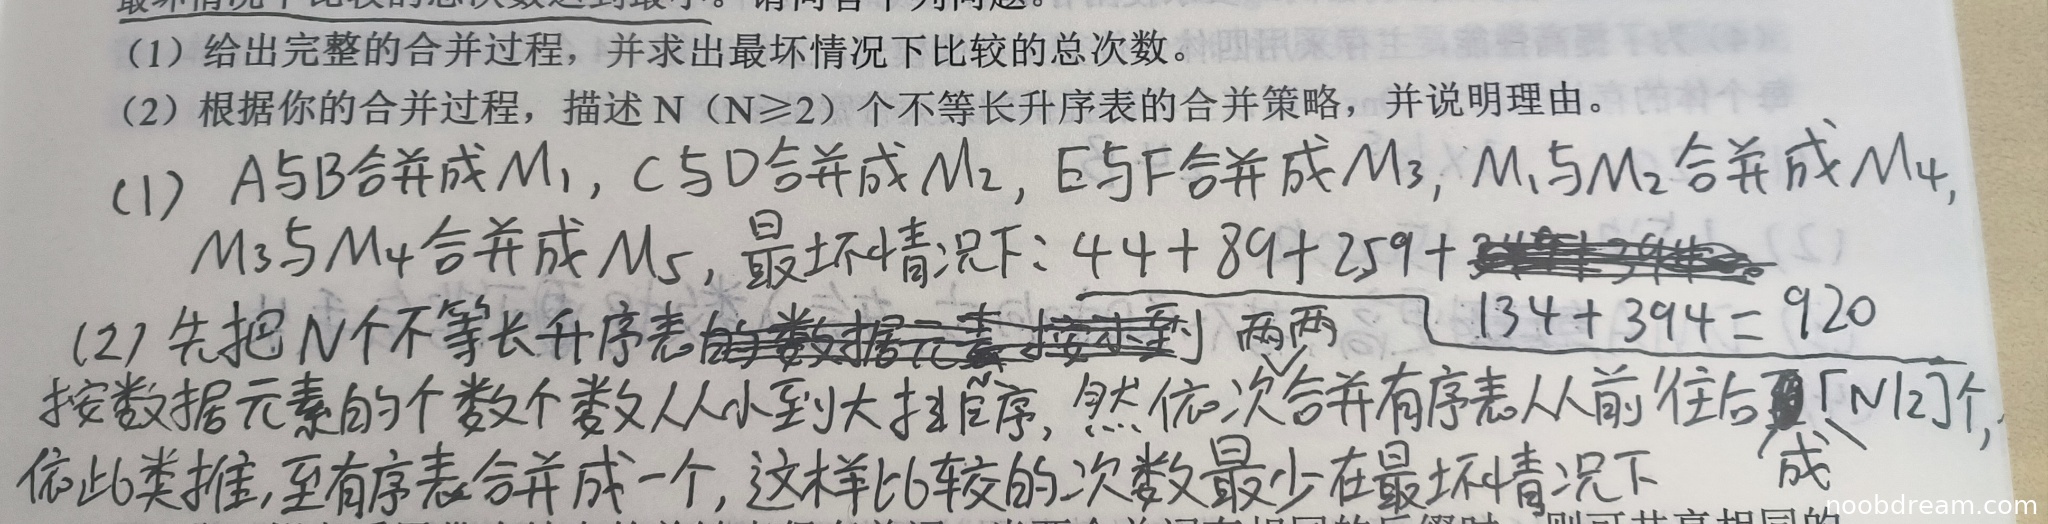 最坏情况下比较的总次数达到最小。请回答下列问题。
（1）给出完整的合并过程，并求出最坏情况下比较的总次数。
（2）根据你的合并过程，描述 N（N≥2）个不等长升序表的合并策略，并说明理由。
(1) A与B合并成M1, C与D合并成M2, E与F合并成M3, M1与M2合并成M4,
M3与M4合并成M5, 最坏情况下: 44+89+259+
134+394=920
(2) 先把N个不等长升序表 两两
按数据元素的个数个数从小到大排序, 然依次合并有序表从前往后 成 [N/2]个,
依此类推, 至有序表合并成一个, 这样比较的次数最少在最坏情况下
noobdream.com